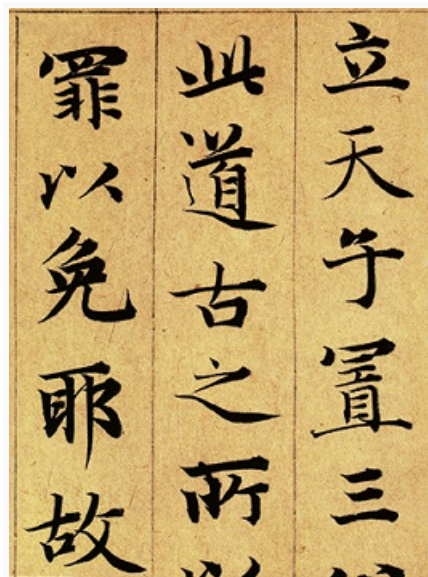 立天子置三
此道古之所
罪以免耶故